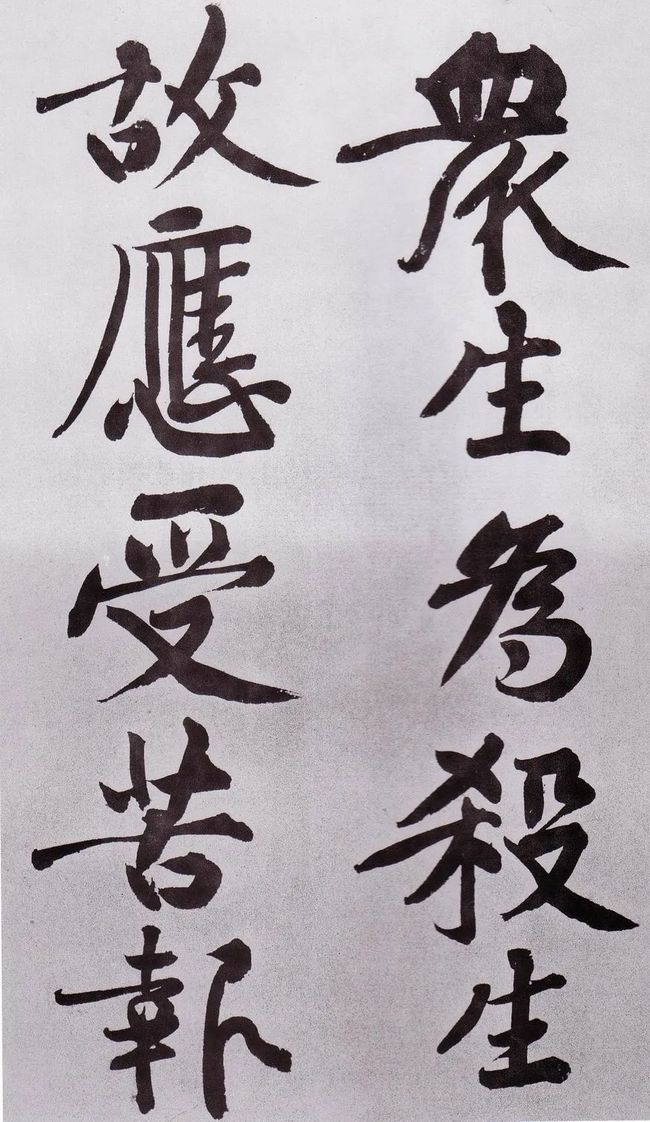 眾生為殺生
故應受苦報